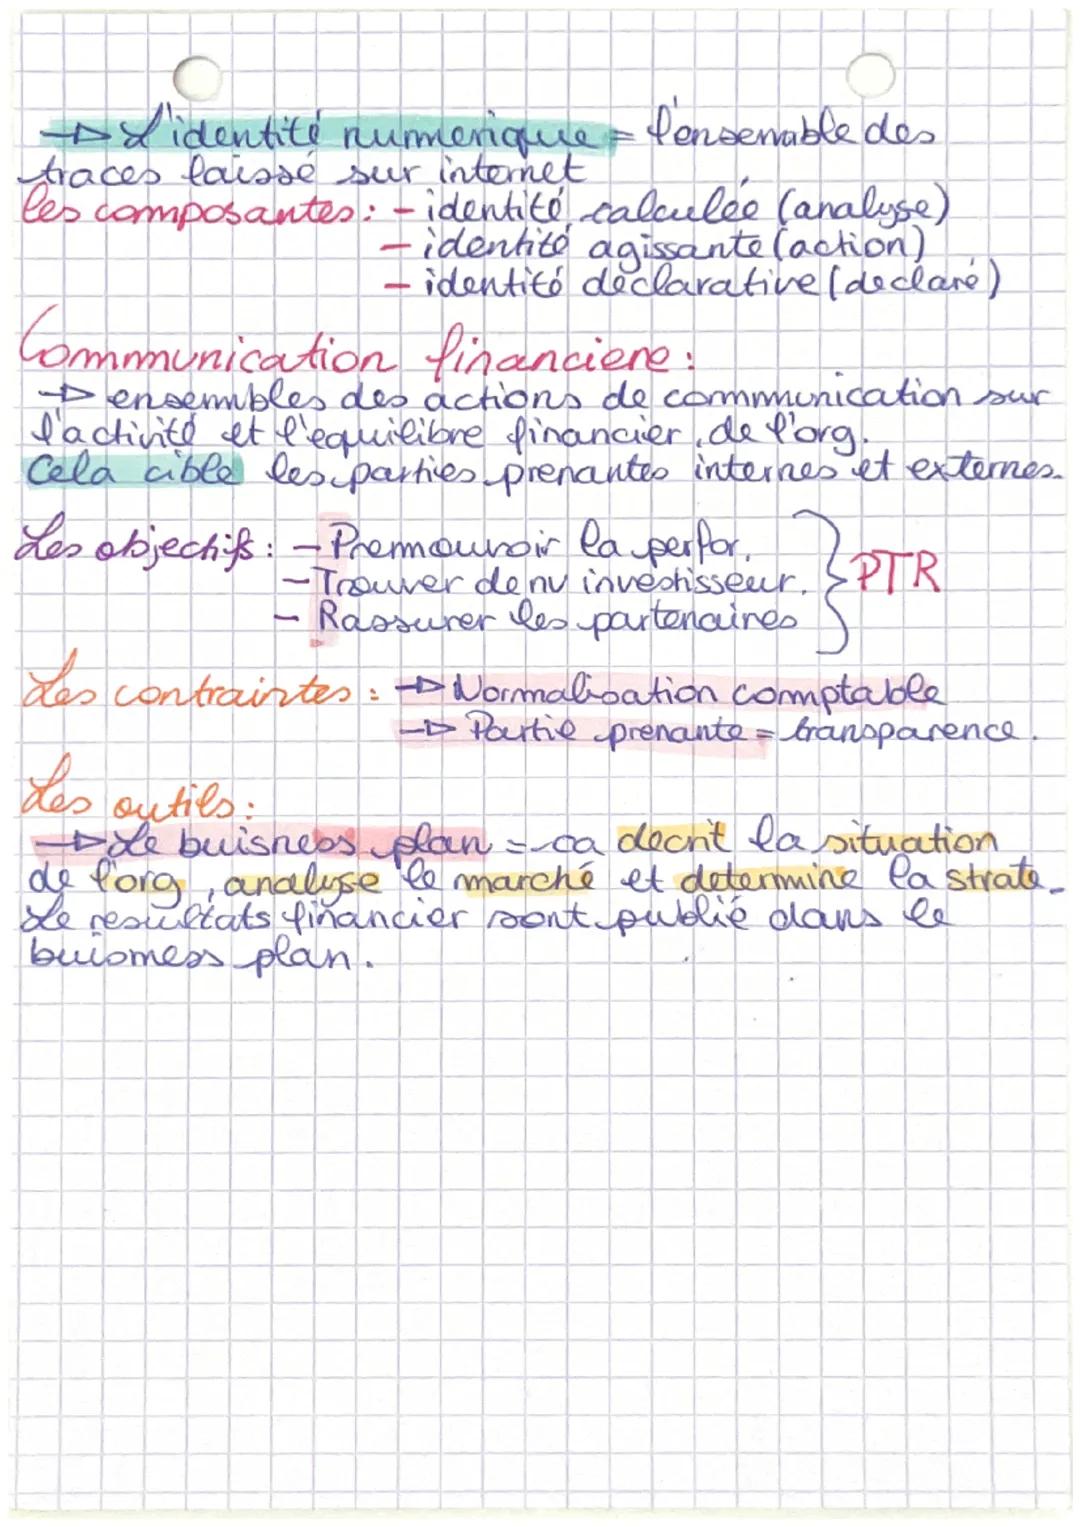 → L'identité numerique = l'ensemble des
traces laissé sur internet
les composantes : - identité calculée (analyse)
- identité agissante (action)
- identité déclarative (declaré)
Communication financiere :
→ ensembles des actions de communication sur
l'activité et l'equilibre financier de l'org.
Cela cible les parties prenantes internes et externes.
Les objectifs : - Premouvoir la perfor.
- Trouver de nv investisseur. } PTR
- Rassurer les partenaires
Les contraintes : → Normalisation comptable
→ Partie prenante = transparence.
Les outils :
→ Le buisness plan = ca decrit la situation
de l'org, analyse le marché et determine la strate.
Le resultats financier sont publié dans le
buisness plan.